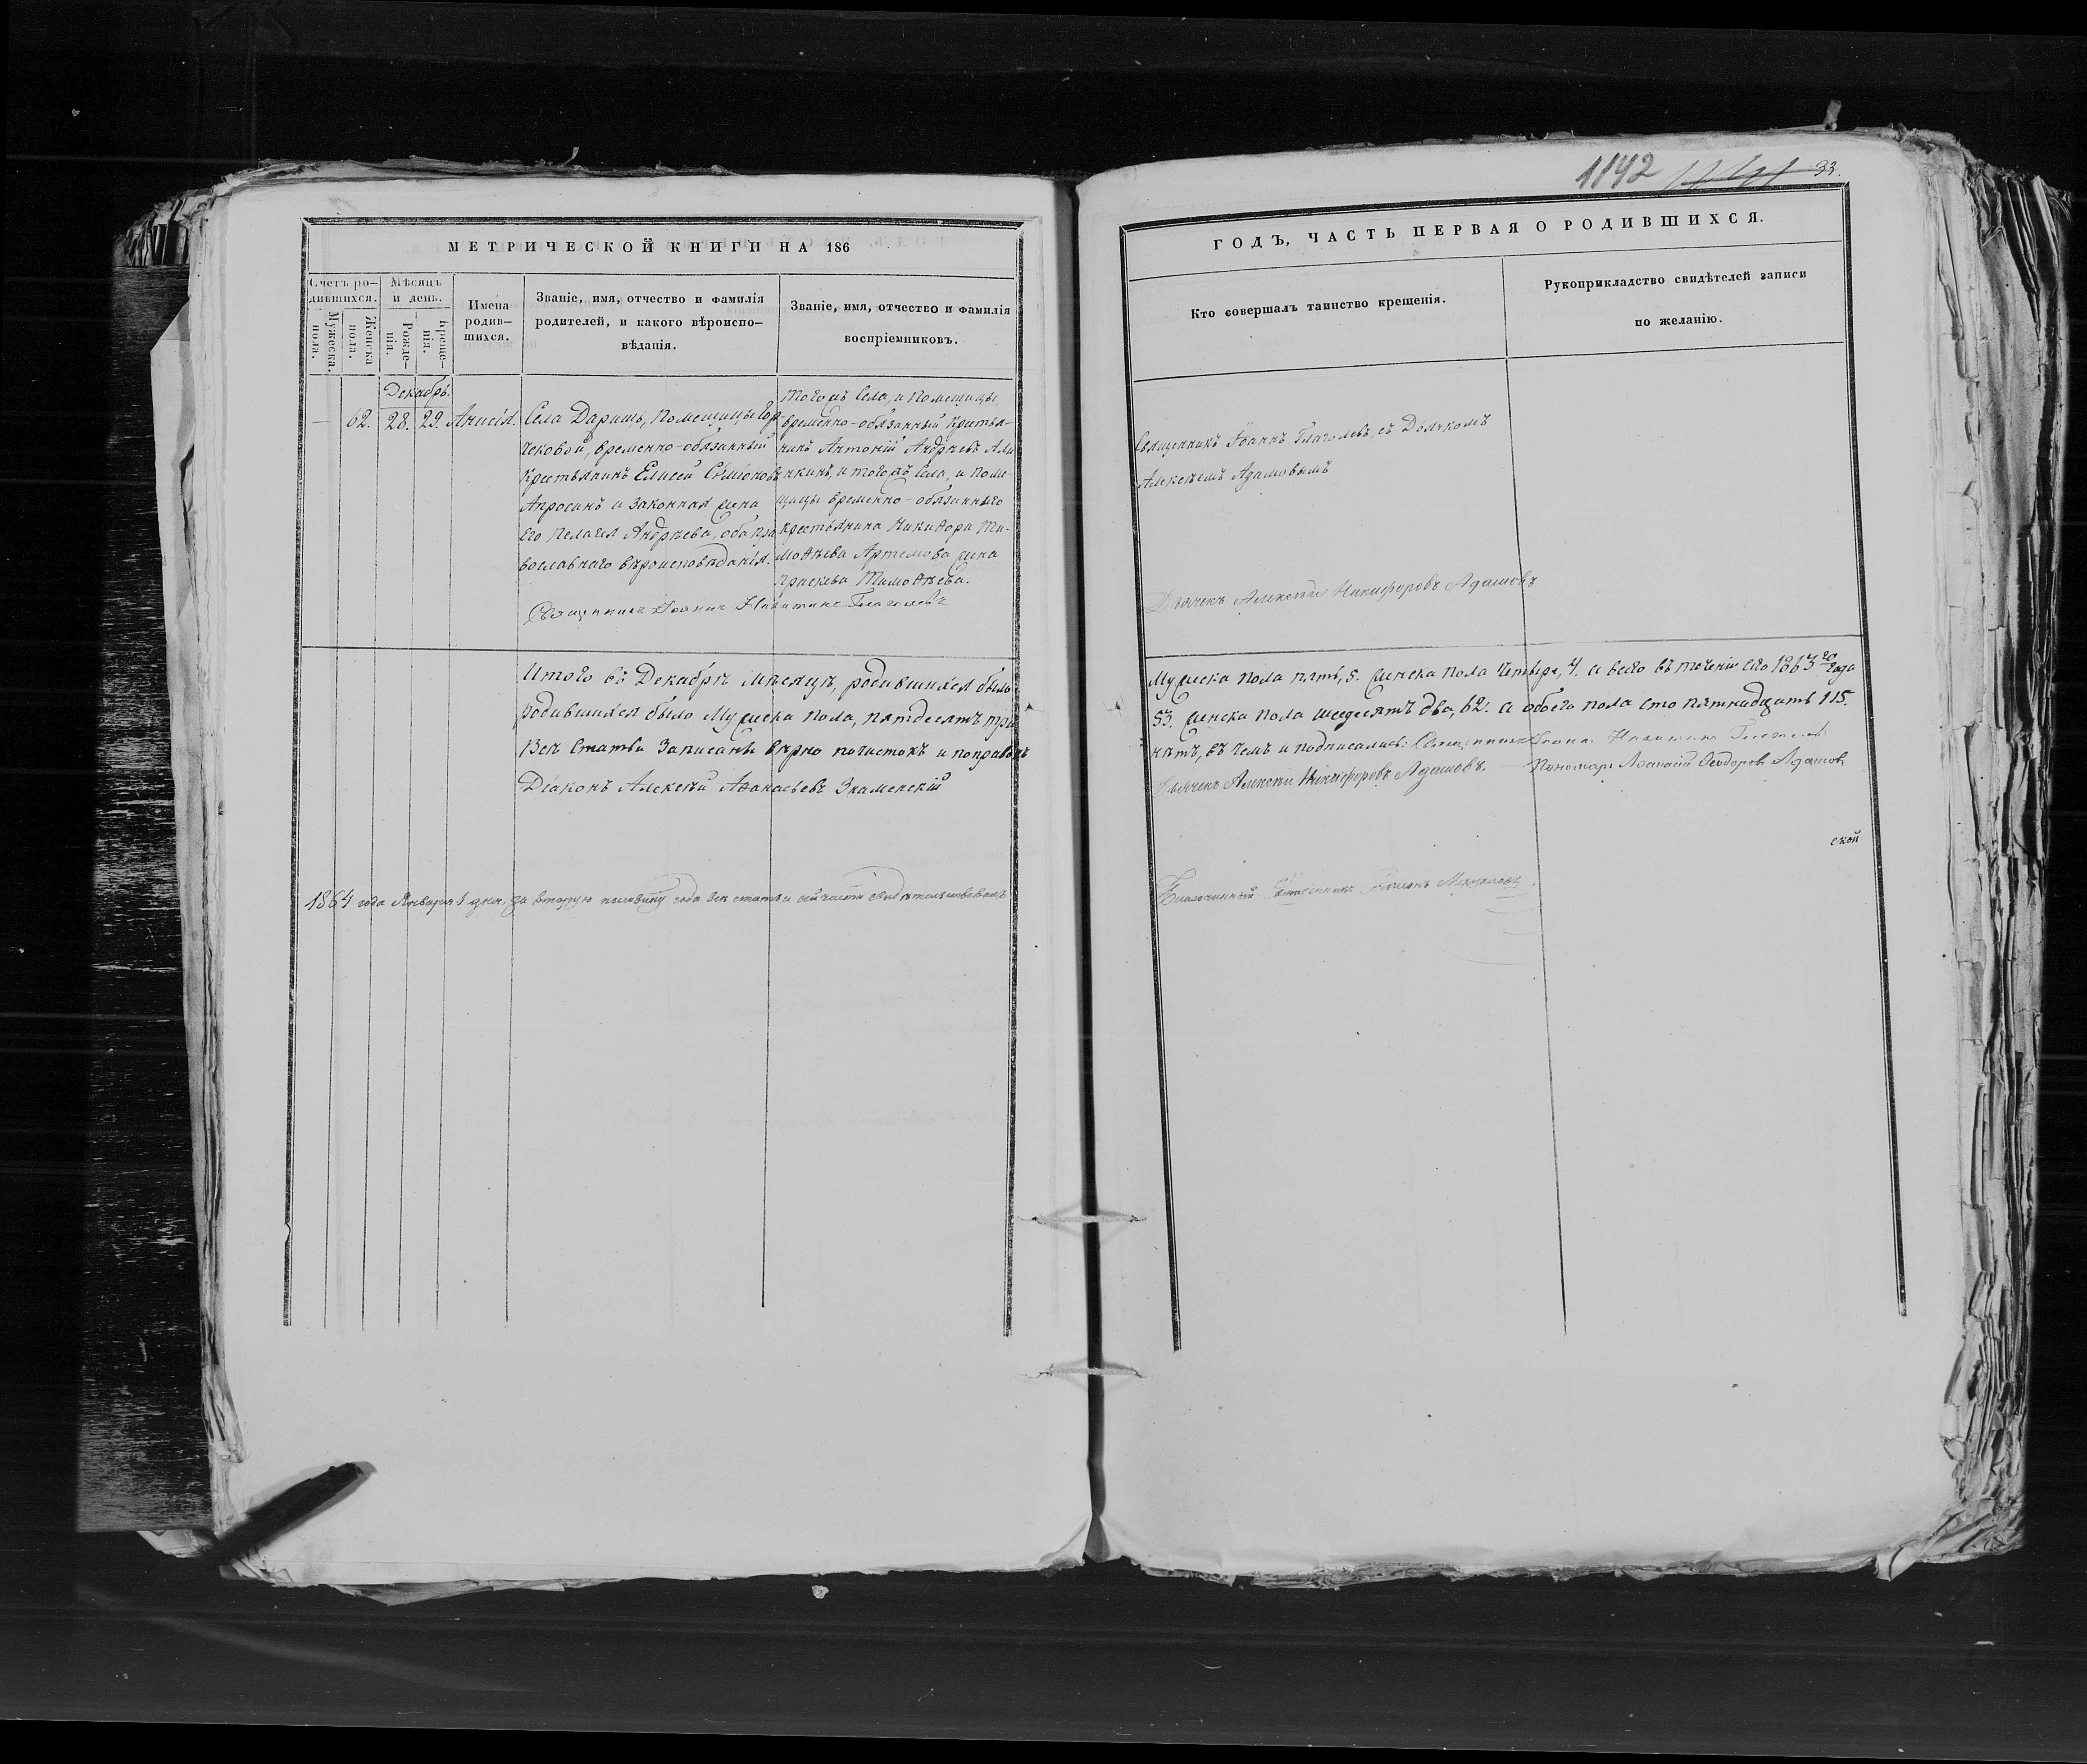 МЕТРИЧЕСКОЙ КНИГИ НА 186
Счетъ ро-
дившихся.
Мужеска
пола.
Женска
пола.
Мѣсяцъ
и день.
Рожде-
нія.
Креще-
нія.
Имена
родив-
шихся.
Званіе, имя, отчество и фамилія
родителей, и какого вѣроиспо-
вѣданія.
Званіе, имя, отчество и фамилія
воспріемниковъ.
Декабрь.
— 62. 28. 29. Анисія.
Села Даращъ, помещицы Гор-
чековой, временно-обязанный
Крестьянинъ Елисей Сѵмеоновъ
Апросинъ и законная жена
его Пелагея Андрѣева, оба пра
вославнаго вѣроисповѣданія.
Священникъ Іоаннъ Никитинъ Глаголевъ
Тогожъ Села, и помещицы,
временно-обязанный Крестья-
нинъ Антоній Андрѣевъ Али
нкинъ, и тогожъ Села, и поме
щицы временно-обязаннаго
крестьянина Никиѳора Ти-
моѳѣева Артемова жена
Праскева Тимоѳѣева.
Итого въ Декабрѣ мѣсяцѣ, родившихся было
родившихся было Мужеска пола, пятдесятъ три
Всѣ статьи записаны вѣрно почистокъ и поправокъ
Діаконъ Алексѣй Аѳанасьевъ Знаменскій
1864 года Января 1 дня. За вторую половину года всѣ статьи сей части свидѣтельствовалъ
1142 33.
ГОДЪ, ЧАСТЬ ПЕРВАЯ О РОДИВШИХСЯ.
Кто совершалъ таинство крещенія.
Рукоприкладство свидѣтелей записи
по желанію.
Священникъ Іоаннъ Глаголевъ, съ Дьячкомъ
Алексѣемъ Адамовымъ
Дьячекъ Алексѣй Никифоровъ Адамовъ
Мужеска пола пять, 5. Женска пола четыре, 4. а всего въ теченіи сего 1863го года
53. Женска пола шесдесятъ два, 62. а обоего пола сто пятнадцать 115.
нѣтъ, въ чемъ и подписались: Священникъ Іоаннъ Никитинъ Глаголевъ
Дьячекъ Алексѣй Никифоровъ Адамовъ. Пономарь Аѳанасій Ѳеодоровъ Адамовъ
ской
Благочинный Священникъ